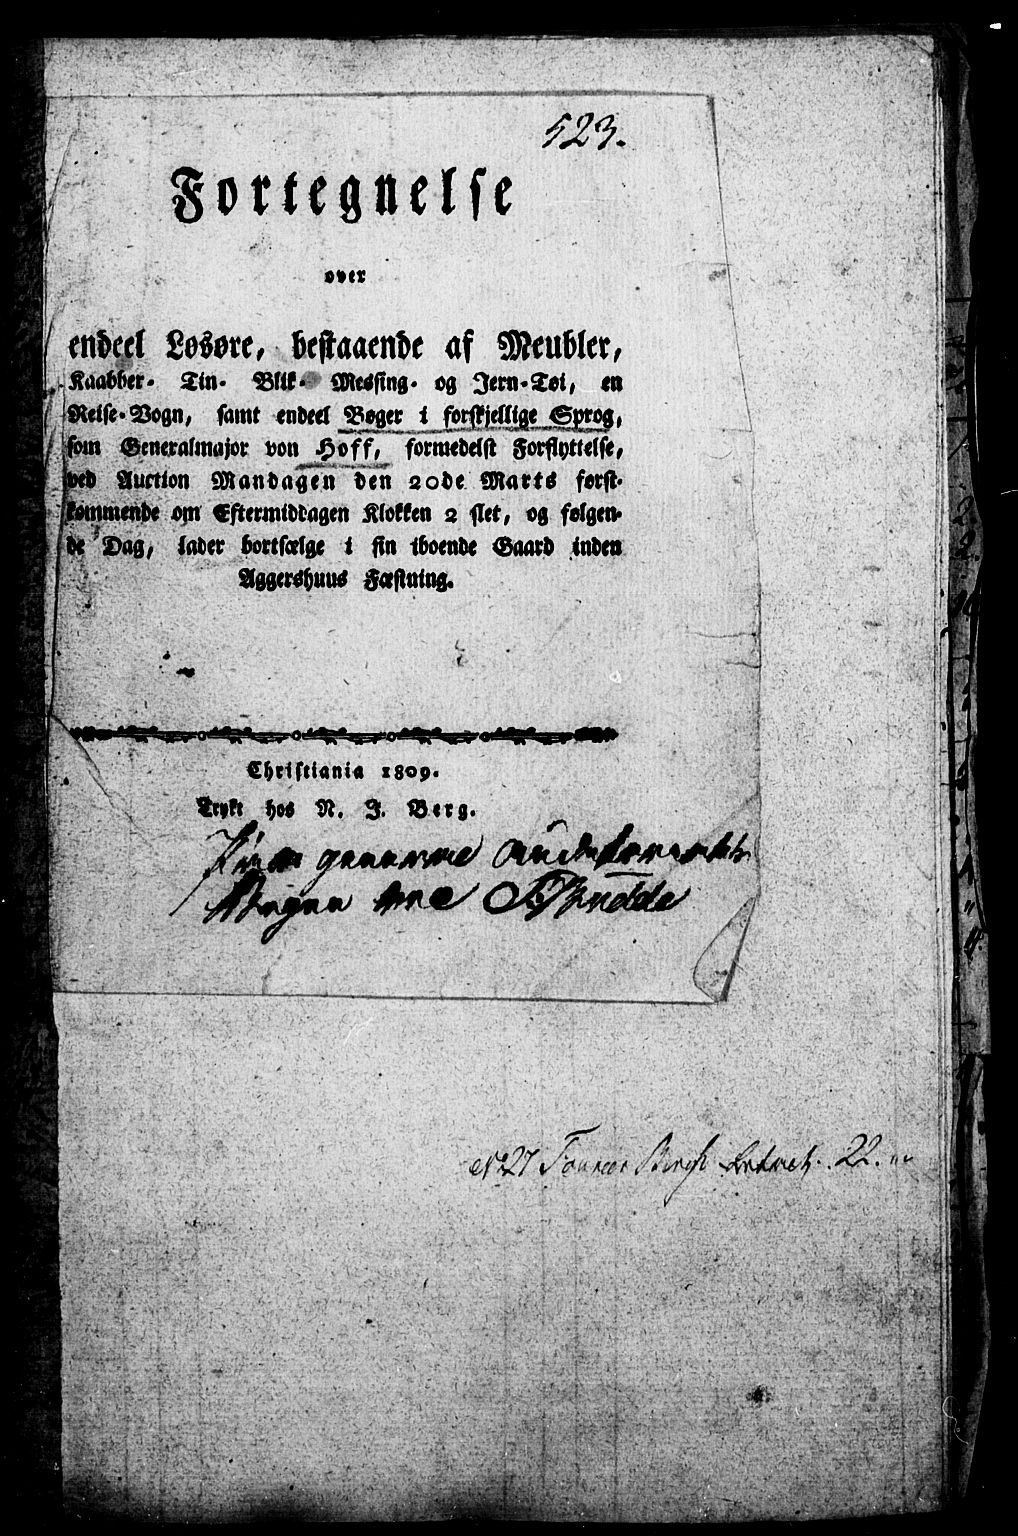 523.
Fortegnelse
over
endeel Løsøre, bestaaende af Meubler,
Kaabber- Tin- Blik- Messing- og Jern-Tøi, en
Reise-Vogn, samt endeel Bøger i forskjellige Sprog,
som Generalmajor von Hoff, formedelst Forflyttelse,
ved Auction Mandagen den 20de Marts først-
kommende om Eftermiddagen Klokken 2 slet, og følgen-
de Dag, lader bortsælge i sin iboende Gaard inden
Aggershuus Fæstning.
Christiania 1809.
Trykt hos N. J. Berg.
Budde
No 27 22.